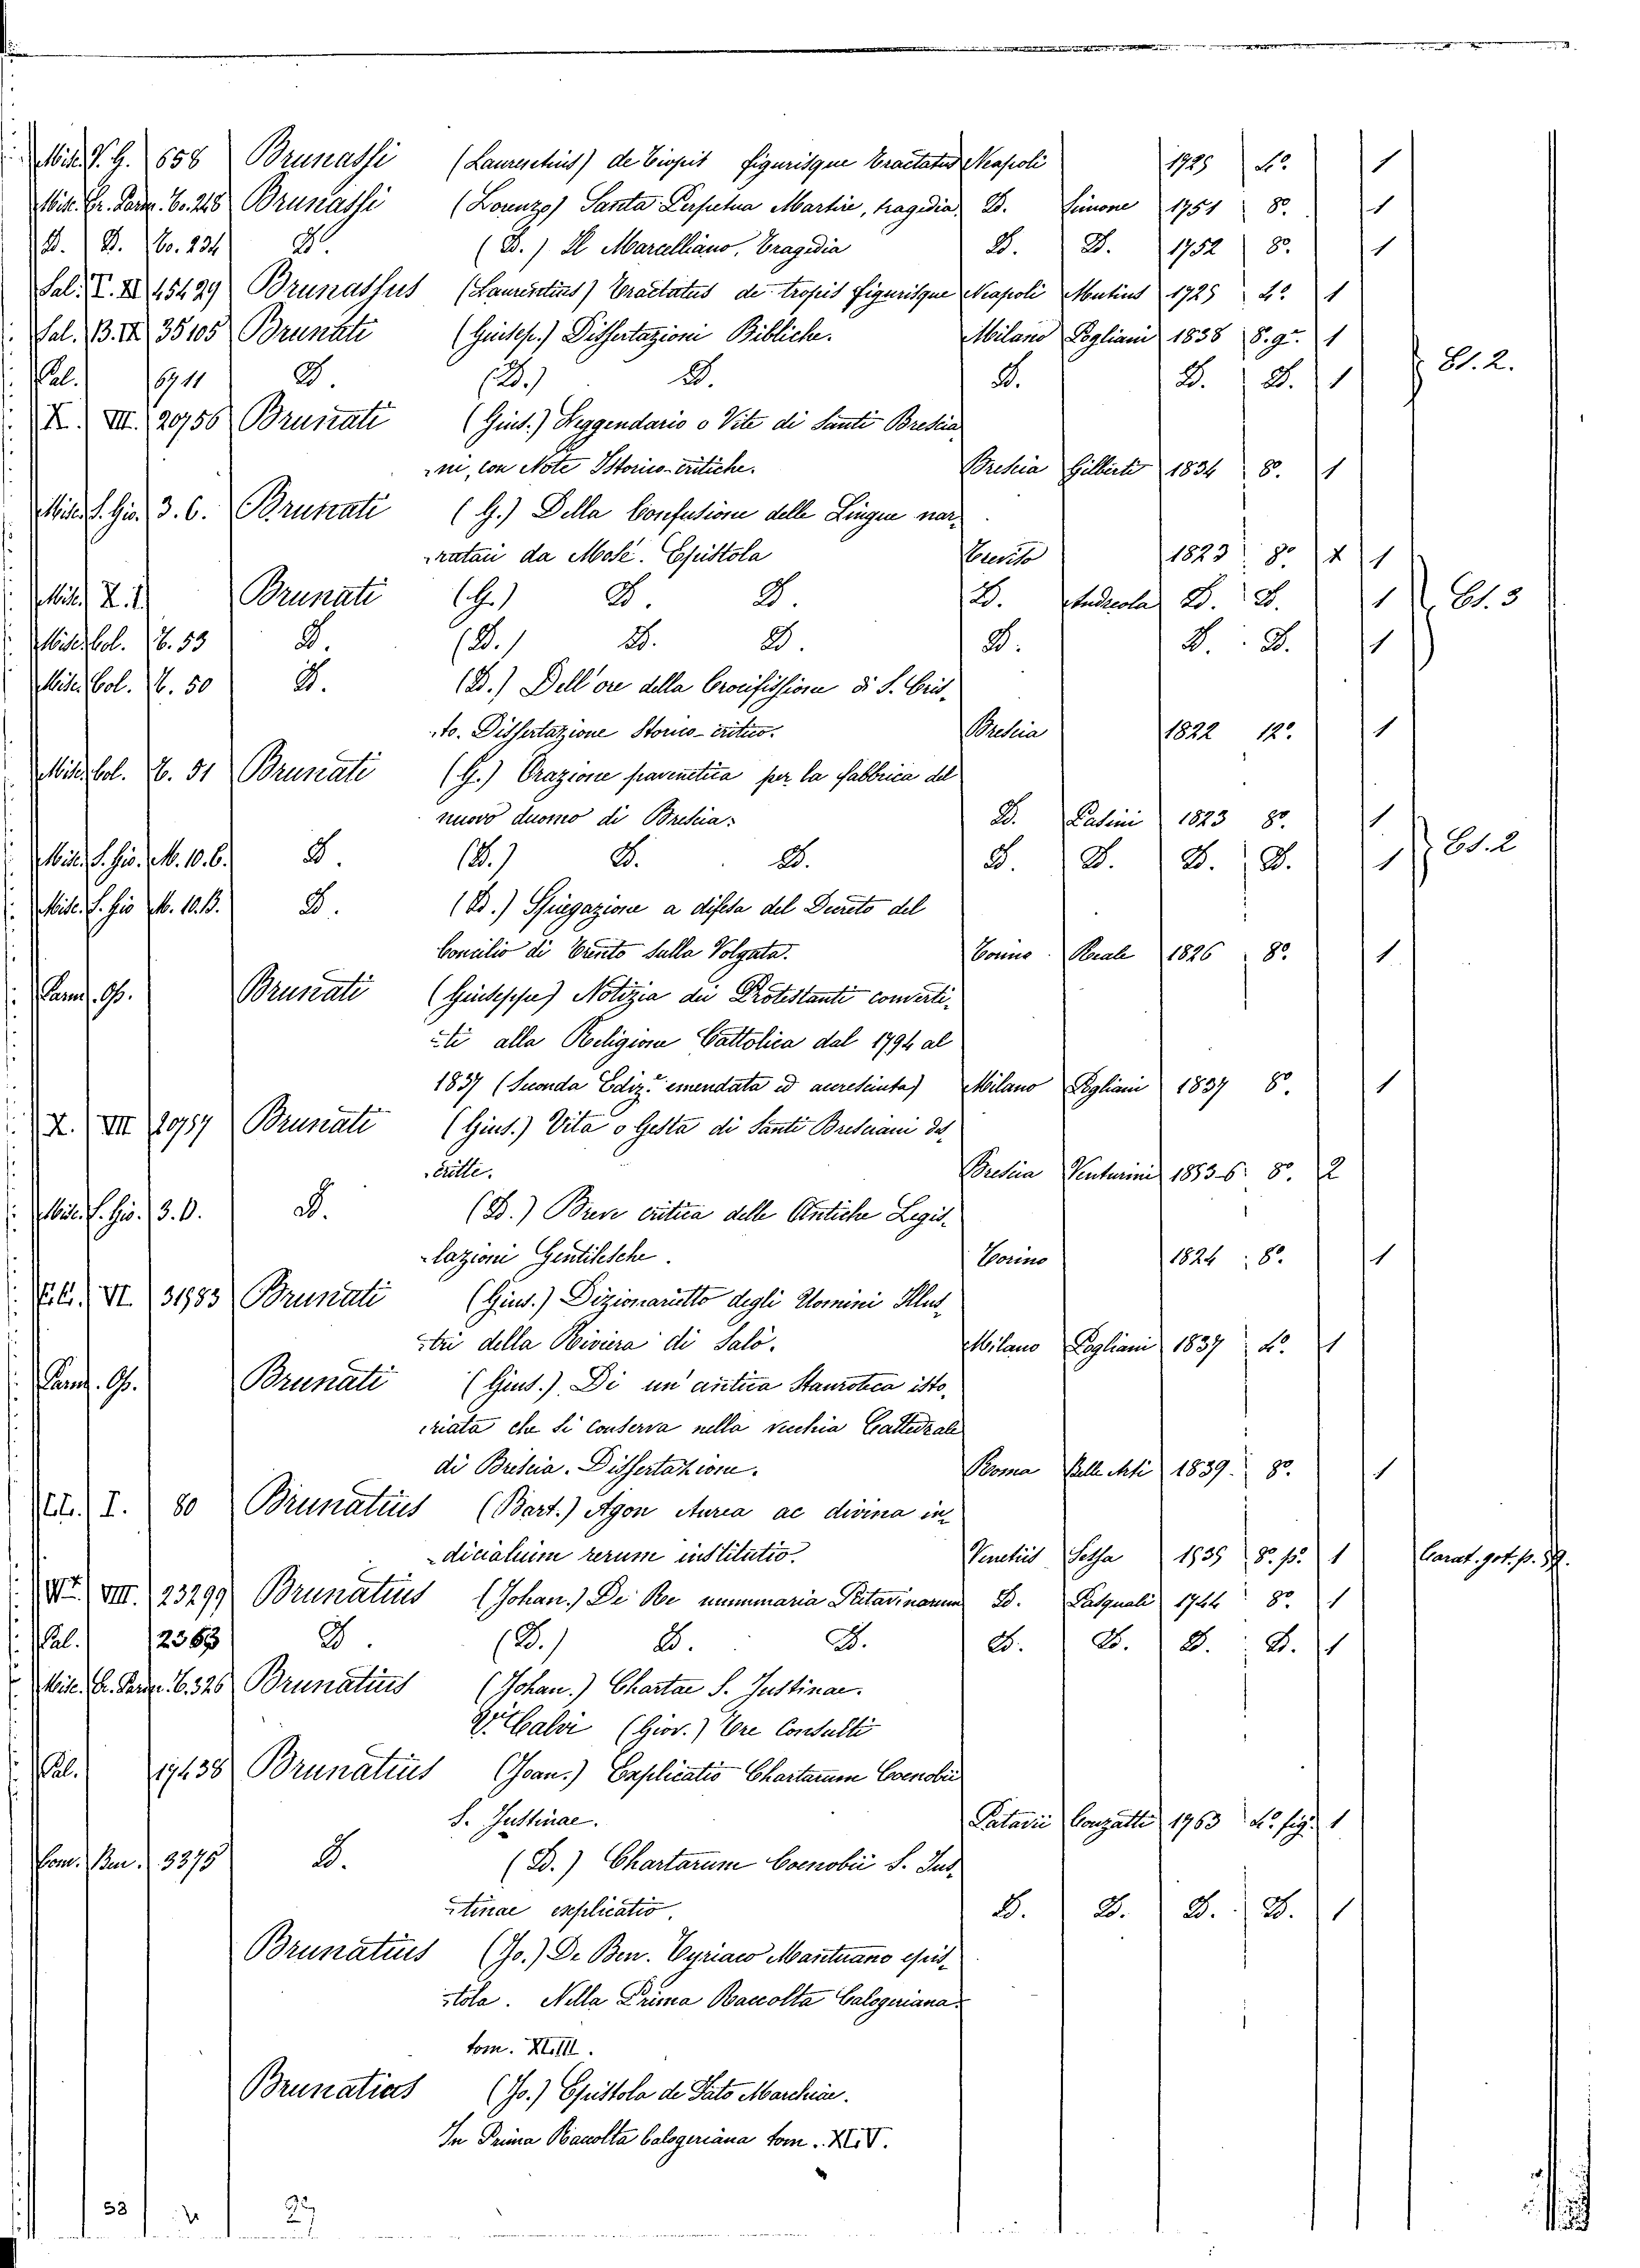 Mis. V. G. 658 Brunassi (Laurentius) de Tropis figurisque Tractatus Neapoli 1725 4º 1
Mis. Gr. Parm. to. 218 Brunassi (Lorenzo) Santa Perpetua Martire, tragedia D. Simone 1751 8º 1
D. D. to. 234 D. (D.) Il Marcelliano, Tragedia D. D. 1752 8º 1
Sal. T. XI 45429 Brunassus (Laurentius) Tractatus de tropis figurisque Neapoli Mutius 1725 4º 1
Sal. B. IX 35105 Brunati (Giusep.) Dissertazioni Bibliche. Milano Pogliani 1838 8. gr. 1
Pal. 6911 D. (D.) D. D. D. D. 1 Es. 2.
X. VII. 20756 Brunati (Gius.) Leggendario o Vite di Santi Brescia
ni, con Note Istorico-critiche. Brescia Gilberti 1834 8º 1
Mis. S. Gio. 3. 6. Brunati (G.) Della Confusione delle Lingue nar
ratair da Mosè. Epistola Trevito 1823 8º 1
Mis. Z. 1. Brunati (G.) D. D. D. Andreola D. D. 1 Es. 3
Misc. Col. to. 53 D. (D.) D. D. D. D. D. 1
Misc. Col. to. 50 D. (D.) Dell'ore della Crocifissione di S. Cris
to. Dissertazione Storico-critico. Brescia 1822 12º 1
Misc. Col. to. 51 Brunati (G.) Orazione parenetica per la fabbrica del
nuovo duomo di Brescia. D. Pasini 1823 8º 1
Mis. S. Gio. M. 10. 6. D. (D.) D. D. D. D. D. D. 1 Es. 2
Misc. S. Gio M. 10. 13. D. (D.) Spiegazione a difesa del Decreto del
Concilio di Trento sulla Volgata. Torino Reale 1826 8º 1
Parm. O. Brunati (Giuseppe) Notizia dei Protestanti converti
ti alla Religione Cattolica dal 1794 al
1837 (Seconda Ediz.e emendata ed accresciuta) Milano Pogliani 1837 8º 1
X. VII 20757 Brunati (Gius.) Vita o Gesta di Santi Bresciani des
critte. Brescia Venturini 1853-6 8º 2
Misc. S. Gio. 3. 0. D. (D.) Breve critica delle Antiche Legis
lazioni Gentilesche. Torino 1824 8º 1
VI. 31983 Brunati (Gius.) Dizionarietto degli Uomini Illus
tri della Riviera di Salò. Milano Pogliani 1837 4º 1
Parm. O. Brunati (Gius.) Di un'antica Stauroteca isto
riata che si conserva nella vecchia Cattedrale
di Brescia. Dissertazione. Roma Belle Arti 1839 8º 1
I. 80 Brunatius (Bart.) Agon Aurea ac divina in
dicialium rerum institutio. Venetiis Sessa 1535 8º p.º 1 Carat. got. p. 59.
VIII. 23299 Brunatius (Johan.) De Re nummaria Patavinorum D. Pasquali 1744 8º 1
Pal. 2363 D. (D.) D. D. D. D. D. D. 1
Misc. Gr. Parm. to. 326 Brunatius (Johan.) Chartae S. Justinae.
V. Calvi (Giov.) Tre Consulti
Pal. 17438 Brunatius (Joan.) Explicatio Chartarum Coenobii
S. Justinae. Patavii Conzatti 1763 4º fig. 1
Com. Ben. 3375 D. (D.) Chartarum Coenobii S. Jus
tinae explicatio. D. D. D. D. 1
Brunatius (Jo.) De Ben. Cyriaco Mantuano epis
tola. Nella Prima Raccolta Calogeriana
tom. XLIII.
Brunatius (Jo.) Epistola de Fato Marchiae.
In Prima Raccolta Calogeriana tom. XLV.
53 27